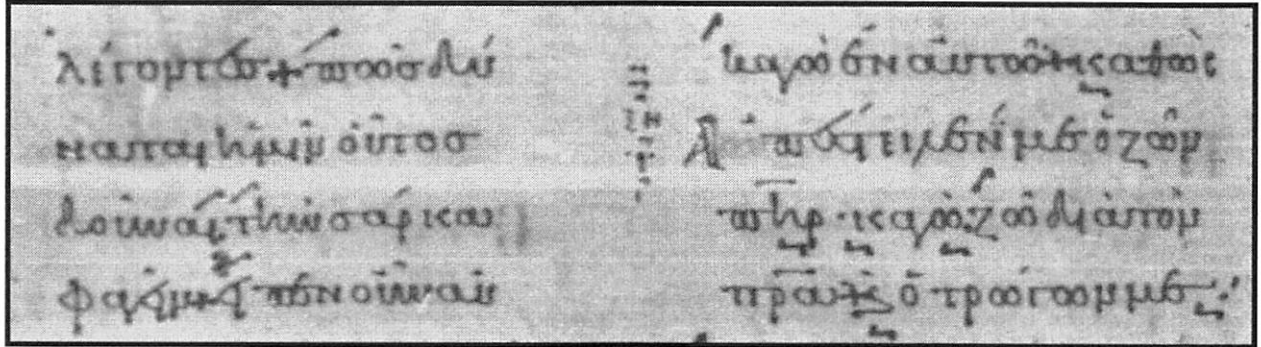 λέγοντες + πῶς δύ
ναται ἡμῖν οὗτος
δοῦναι τὴν σάρκα
φαγεῖν + εἶπεν οὖν αὐ
κἀγὼ ἐν αὐτῷ + καθὼς
ἀπέστειλέν με ὁ ζῶν
πηρ · κἀγὼ ζῶ διὰ τὸν
πρα κ ὁ τρώγων με